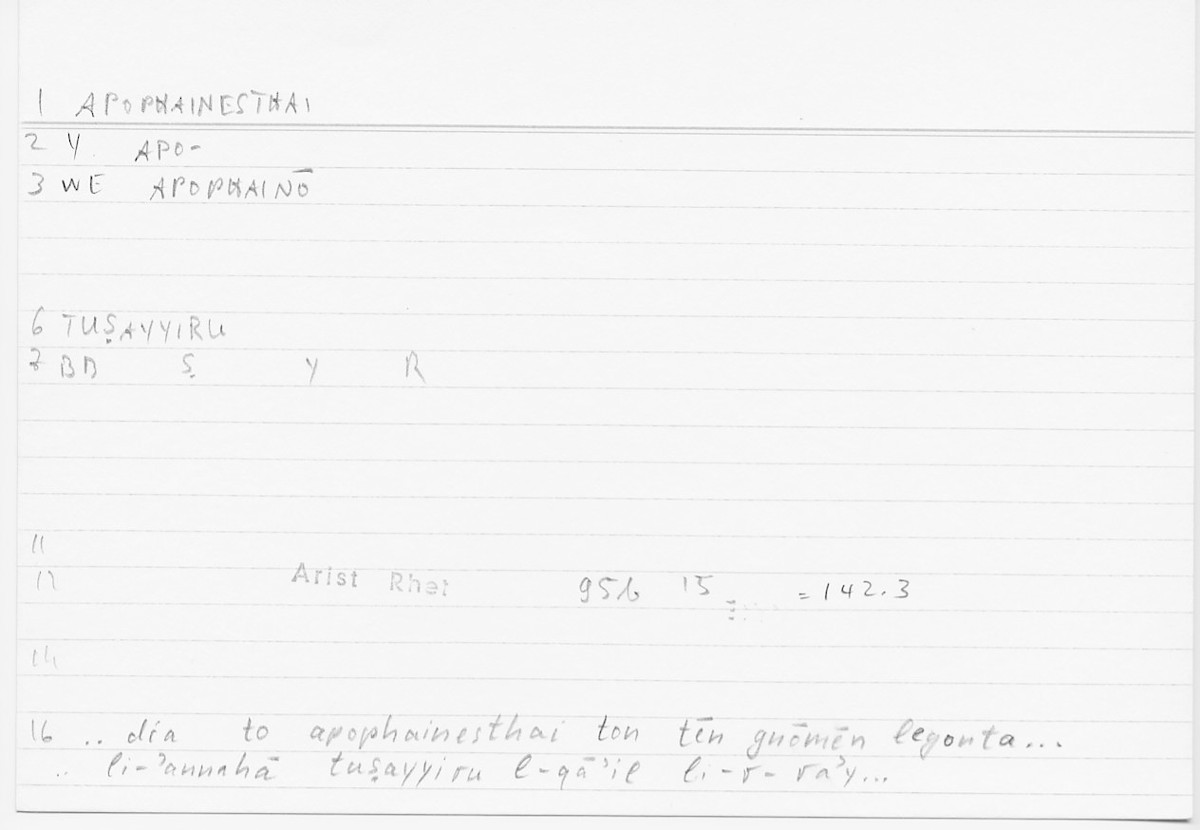 1 APOPHAINESTHAI
2 Y APO-
3 WE APOPHAINŌ
6 TUṢAYYIRU
7 BB Ṣ Y R
11
12 Arist Rhet 95b 15 = 142.3
14
16 .. día to apophainesthai ton tēn gnōmēn legonta...
.. li-ʾannahā tuṣayyiru l-qāʾil li-r-raʾy...